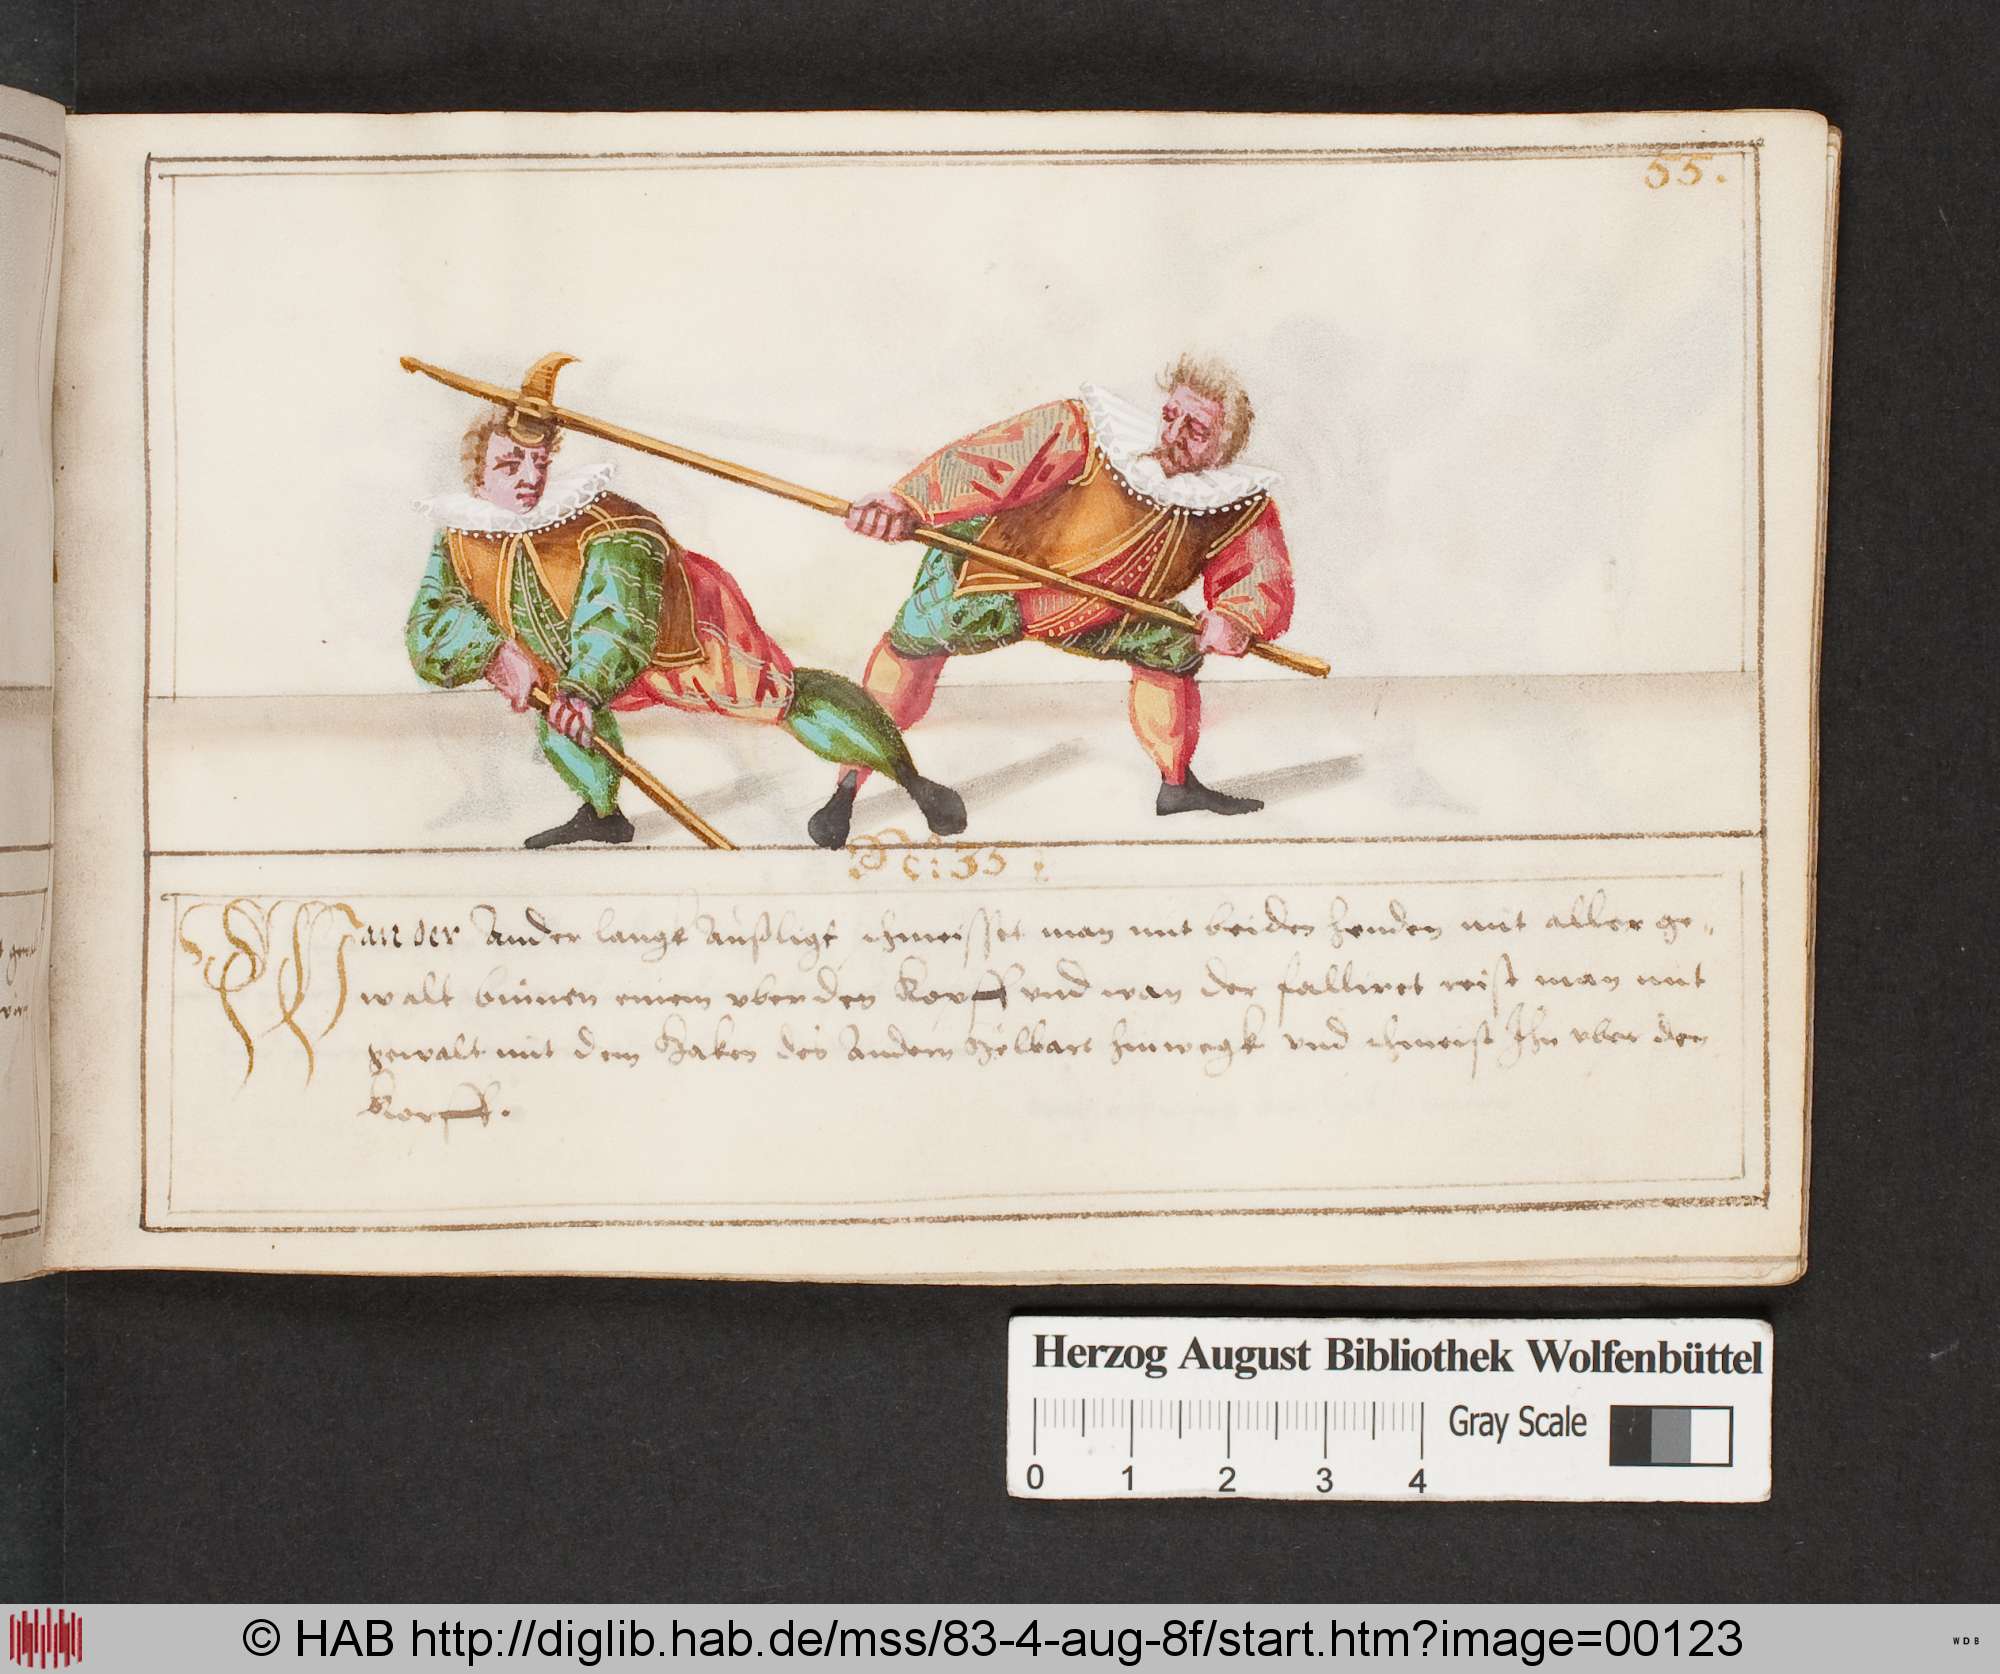 55.
No: 35 :
Wan der Ander langk außligt, schmeisset man mit beiden henden mit aller ge-
walt binnen einem vber den Kopff vnd wan der falliret reist man mit
gewalt mit dem Haken des Andern Helbart hinwegk vnd schmeist Ihn vber den
Kopff.
Herzog August Bibliothek Wolfenbüttel
Gray Scale
0 1 2 3 4
© HAB http://diglib.hab.de/mss/83-4-aug-8f/start.htm?image=00123
WDB